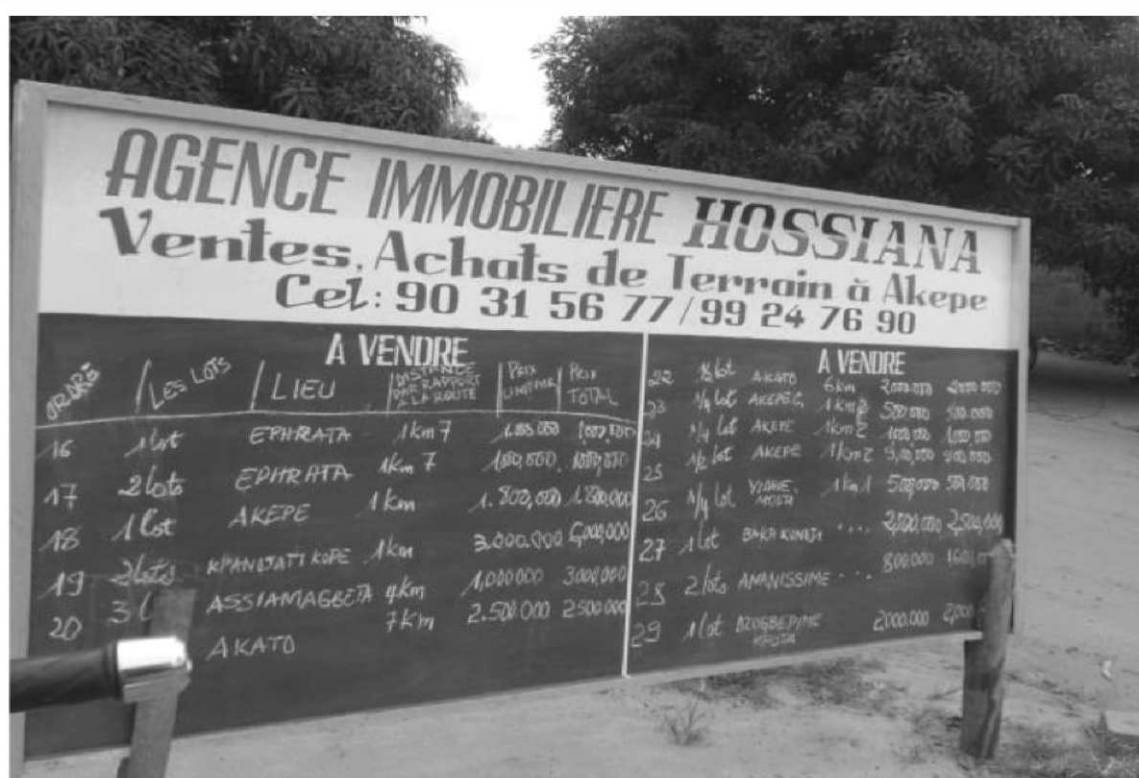 AGENCE IMMOBILIERE HOSSIANA
Ventes, Achats de Terrain à Akepe
Cel: 90 31 56 77 / 99 24 76 90
A VENDRE
ORDRE / LES LOTS / LIEU DISTANCE PAR RAPPORT A LA ROUTE PRIX UNITAIRE PRIX TOTAL
16 1 lot EPHRATA 1km 7
17 2 lots EPHRATA 1km 7
18 1 lot AKEPE 1km 1.800,000 1.800,000
19 2 lots KPANDJATI KOPE 1km 3.000.000 6,000,000
20 3 ASSIAMAGBETA 4km 1,000000 3000,000
AKATO 7km 2.500.000 2500,000
A VENDRE
22 1/2 lot AKATO 6km 2000.000 2000.000
23 1/4 lot AKEPE 1km 2 500.000 500.000
24 1/4 lot AKEPE 1km 2
25 1/2 lot AKEPE 1km 2
26 1/4 lot 1km 1 500,000 500,000
27 1 lot .... 2,500,000 2,500,000
2 lots ANANISSIME ... 800.000
29 1 lot DZOGBEPIME 2000.000